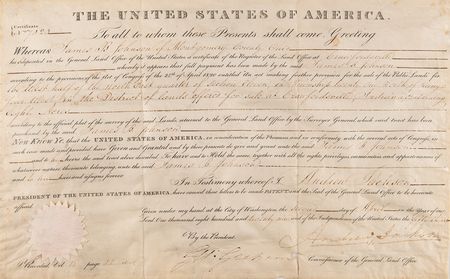 THE UNITED STATES OF AMERICA.
Certificate
To all to whom these Presents shall come, Greeting
Whereas James B Johnson of Montgomery County
has deposited in the General Land Office of the United States a certificate of the Register of the Land Office at Crawfordsville
whereby it appears that full payment has been made by the said James B Johnson
according to the provisions of the Act of Congress of the 24th of April 1820 entitled "An act making further provision for the sale of the Public Lands" for
the West half of the North East quarter of Section in Township twenty North of Range
in the District of Lands offered for sale at Crawfordsville Indiana
Eighty Acres
according to the official plat of the survey of the said Lands returned to the General Land Office by the Surveyor General which said tract has been
purchased by the said James B Johnson
Now Know Ye that the UNITED STATES OF AMERICA, in consideration of the Premises and in conformity with the several acts of Congress, in
such case made and provided have Given and Granted and by these presents do give and grant unto the said James B Johnson
and to his heirs the said tract above described: To have and to Hold the same together with all the rights privileges immunities and appurtenances of
whatsoever nature thereunto belonging unto the said James B Johnson
and to his heirs and assigns forever
In Testimony whereof I, Andrew Jackson
PRESIDENT OF THE UNITED STATES OF AMERICA, have caused these Letters to be made PATENT and the Seal of the General Land Office to be hereunto
affixed
Given under my hand at the City of Washington, the day of in the Year of our
Lord One thousand eight hundred and thirty one and of the Independence of the United States the
By the President
Andrew Jackson
Commissioner of the General Land Office
Recorded Vol page